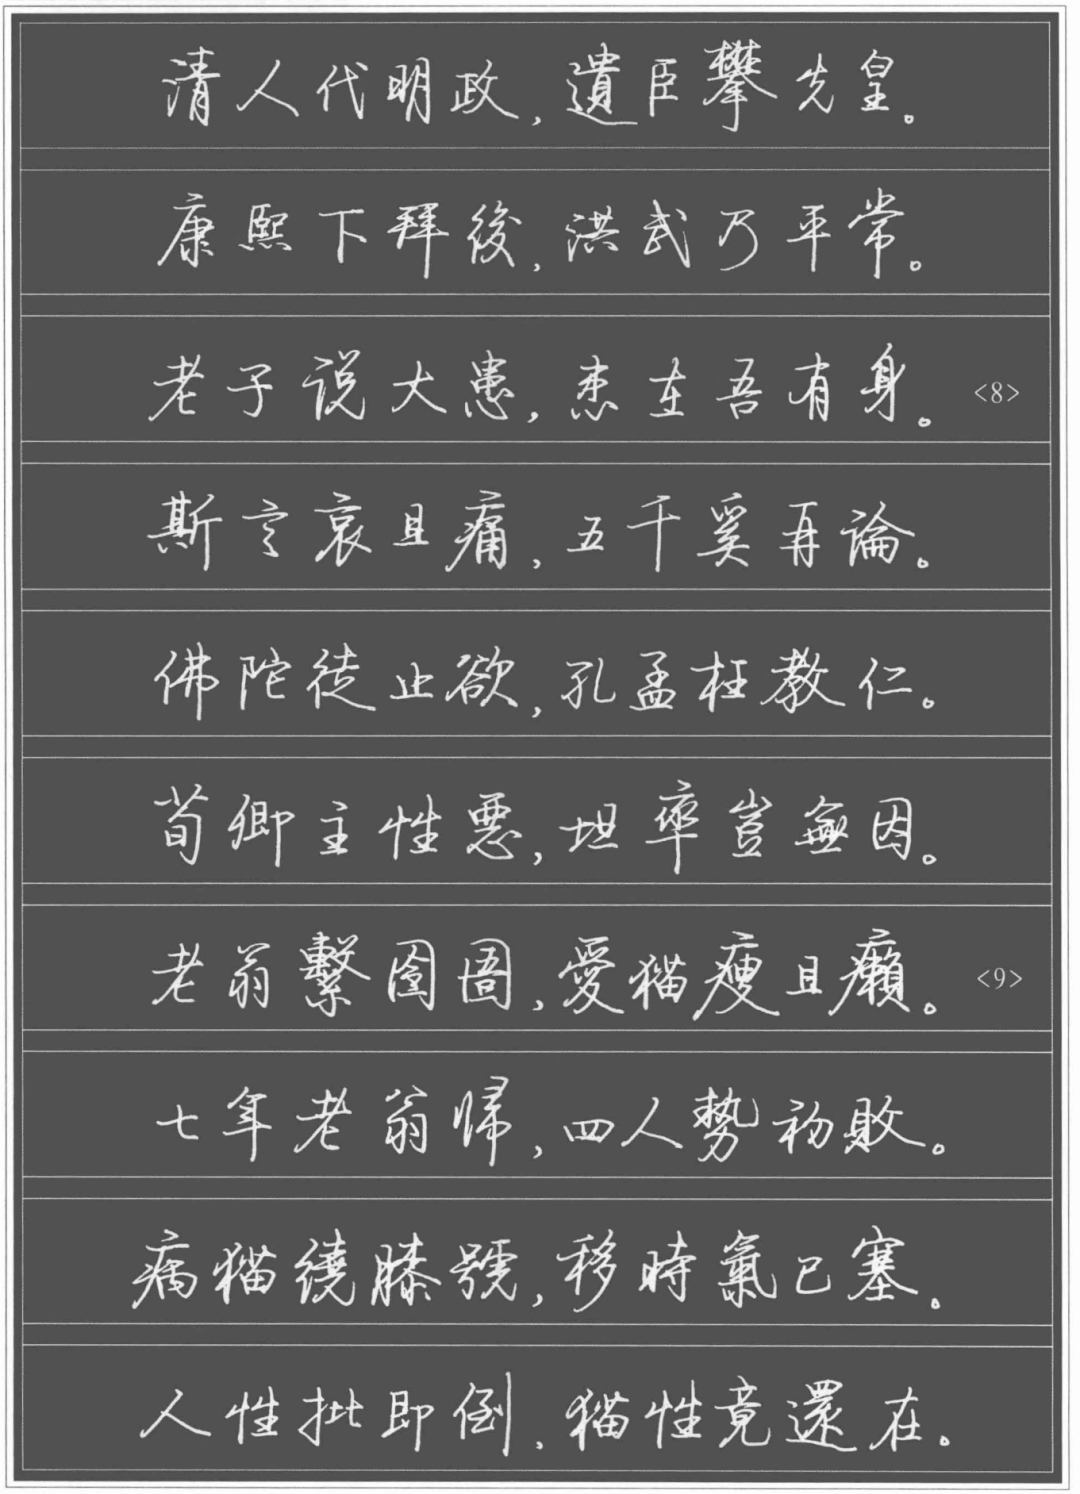 清人代明政，遺臣攀先皇。
康熙下拜後，洪武乃平常。
老子说大患，患在吾有身。 <8>
斯言哀且痛，五千奚再論。
佛陀徒止欲，孔孟枉教仁。
荀卿主性惡，坦率豈無因。
老翁繫囹圄，愛猫瘦且癩。 <9>
七年老翁歸，四人勢初敗。
病猫繞膝號，移時氣已塞。
人性批即倒，猫性竟還在。